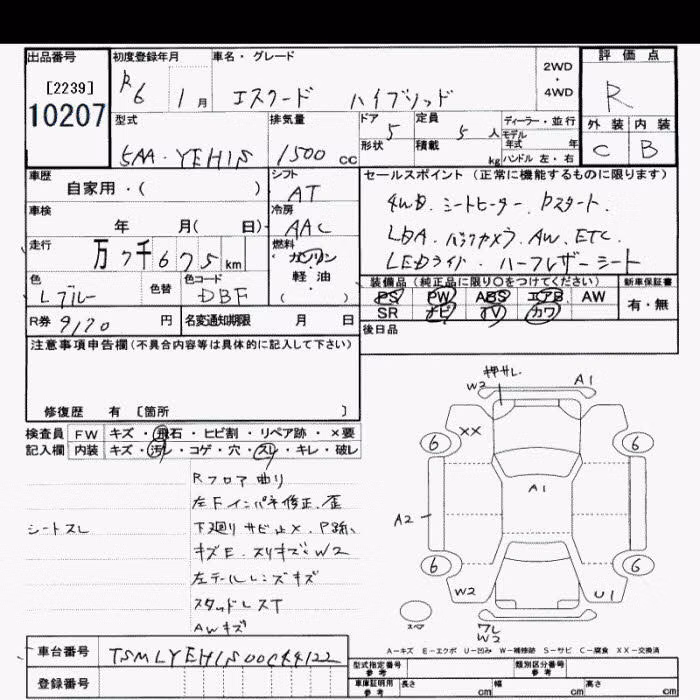 出品番号 初度登録年月 車名・グレード 2WD ・ 4WD 評価点
[2239] R6 1月 エスクード ハイブリッド R
10207
型式 排気量 ドア 5 定員 5人 ディーラー・並行 外装 内装
5AA-YEH1S 1500cc 形状 積載 kg モデル年式 年 C B
ハンドル 左・右
車歴 シフト セールスポイント(正常に機能するものに限ります)
自家用・( ) AT 4WD. シートヒーター. Pスタート.
車検 冷房
年 月( 日) AAC LDA. バックカメラ. AW. ETC.
走行 燃料
万 7千675km ガソリン・軽油 ( ) LEDライト. ハーフレザーシート
色 色替 色コード 装備品(純正品に限り○をつけてください) 新車保証書
Lブルー DBF PS PW ABS エアB AW 有・無
SR ナビ TV カワ
R券 9170円 名変通知期限 月 日 後日品
注意事項申告欄(不具合内容等は具体的に記入して下さい)
修復歴 有 [箇所 ]
検査員 FW キズ・飛石・ヒビ割・リペア跡・×要
記入欄 内装 キズ・汚レ・コゲ・穴・スレ・キレ・破レ
Rフロア曲り
左Fインパネ修正、歪
シートスレ 下廻りサビ止×. P跡、
キズE. スリキズ:W2
左テールレンズキズ
スタッドレスT
AWキズ
押サレ. W2 A1
XX
6 6
A1
A2
6 6
W2 U1
スペア ワレ W2
A-キズ E-エクボ U-凹み W-補修跡 S-サビ C-腐食 XX-交換済
車台番号 型式指定番号 参考 類別区分番号 参考
登録番号 車庫証明用 参考 長さ cm 幅 cm 高さ cm